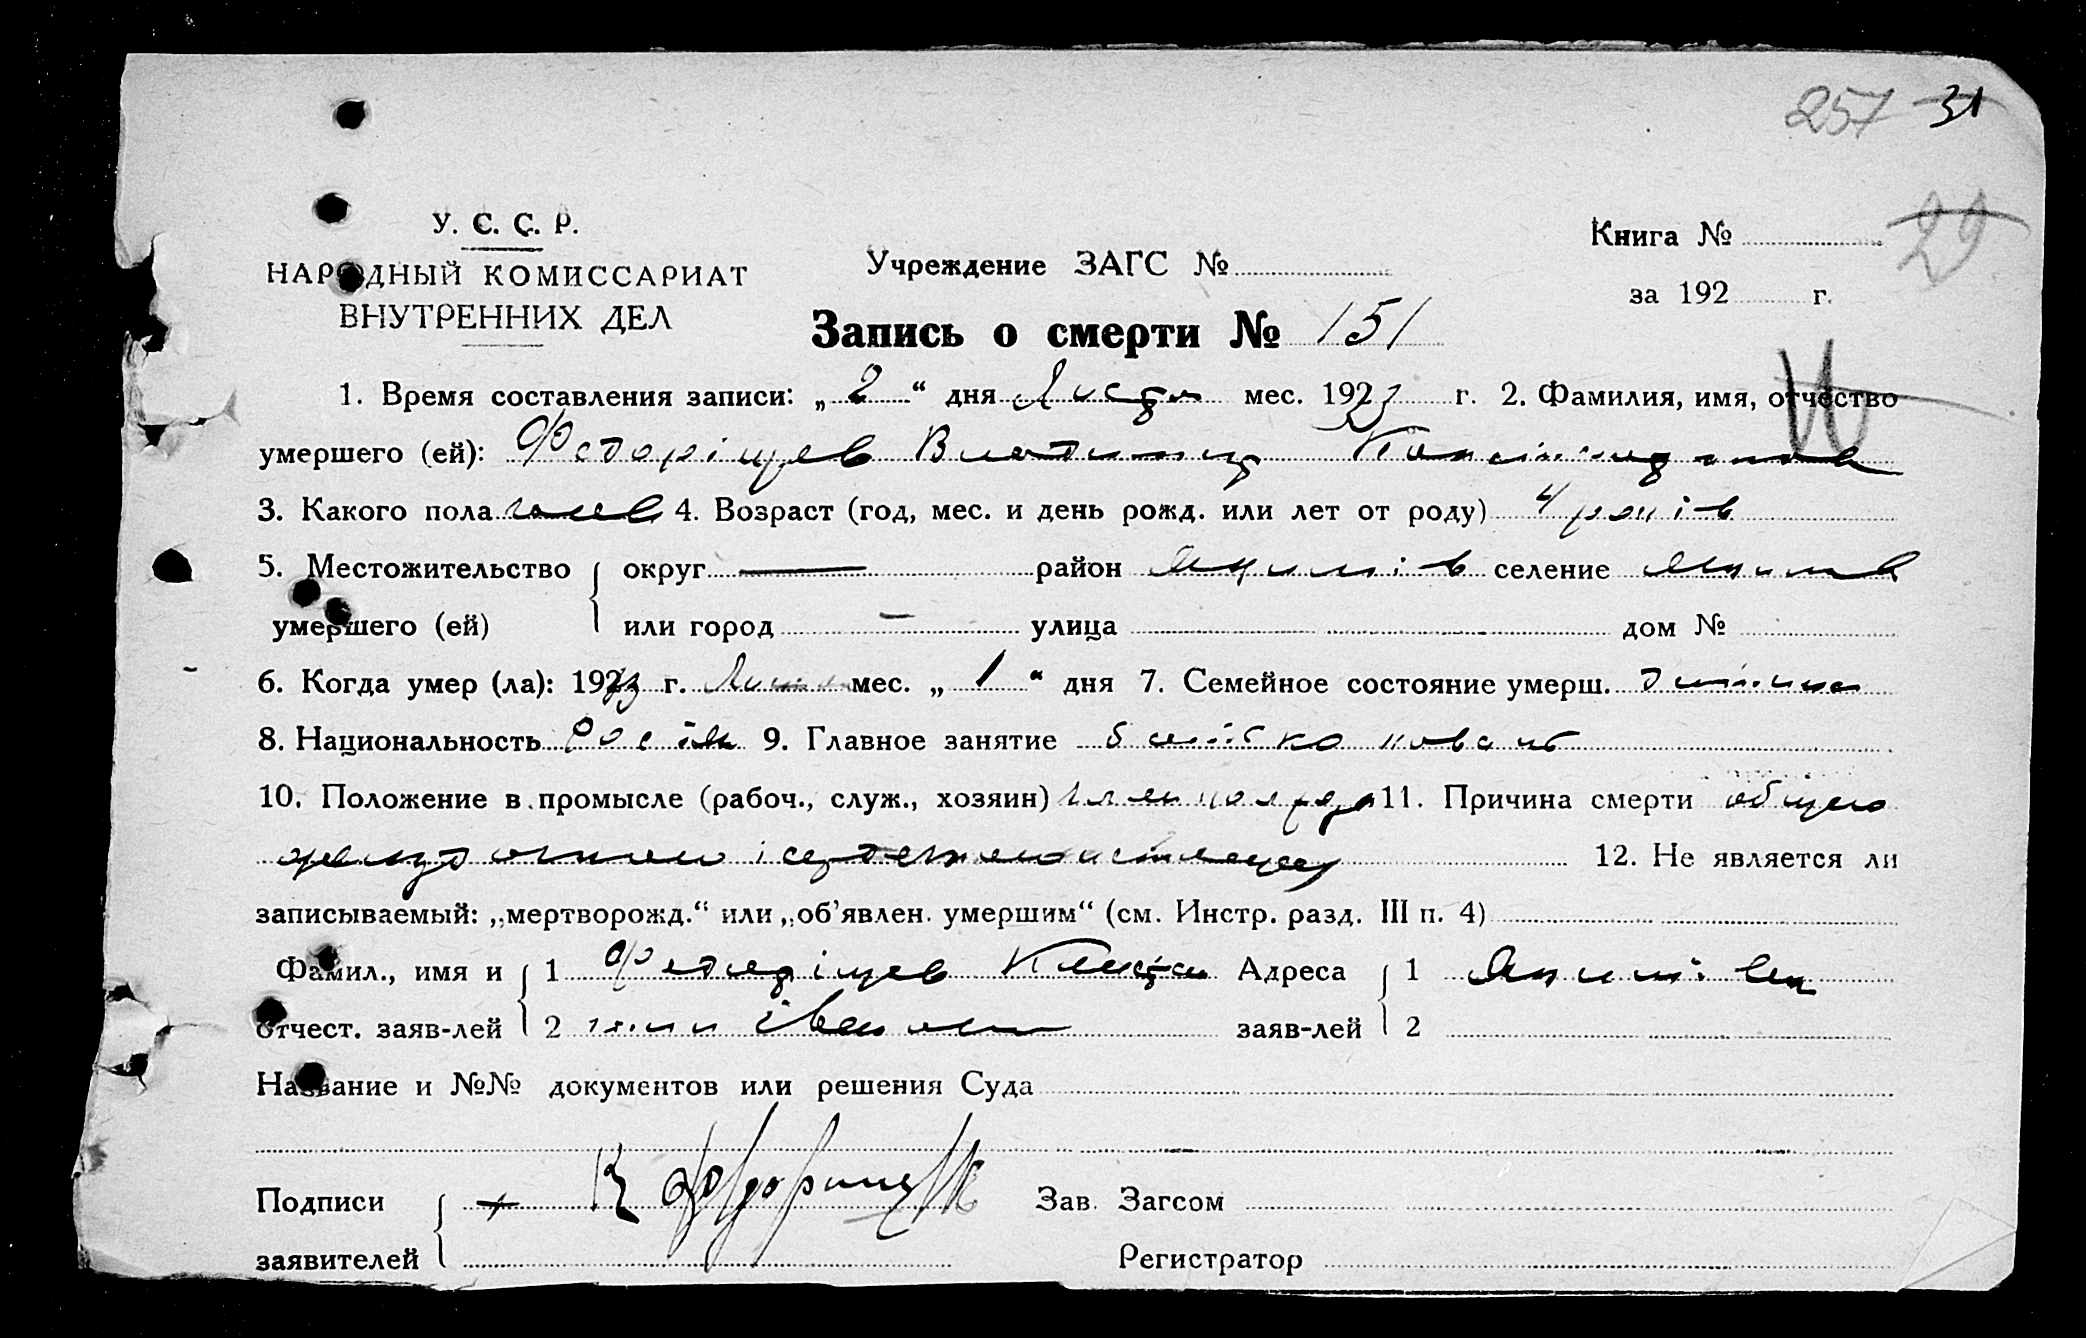 257 31
У. С. С. Р.
НАРОДНЫЙ КОМИССАРИАТ
ВНУТРЕННИХ ДЕЛ
Учреждение ЗАГС №
Книга № 29
за 192 г.
Запись о смерти № 151
1. Время составления записи: „2“ дня мес. 192 г. 2. Фамилия, имя, отчество
умершего (ей): Федоріщев Володимир
3. Какого пола 4. Возраст (год, мес. и день рожд. или лет от роду) 4 років
5. Местожительство округ — район Якимів селение Якимів
умершего (ей) или город — улица дом №
6. Когда умер (ла): 192 г. мес. „1“ дня 7. Семейное состояние умерш. дитина
8. Национальность Росіян 9. Главное занятие батько коваль
10. Положение в промысле (рабоч., служ., хозяин) член 11. Причина смерти
і 12. Не является ли
записываемый: „мертворожд.“ или „об’явлен. умершим“ (см. Инстр. разд. III п. 4)
Фамил., имя и 1 Федоріщев Адреса 1
отчест. заяв-лей 2 заяв-лей 2
Название и №№ документов или решения Суда
Подписи К Зав. Загсом
заявителей Регистратор